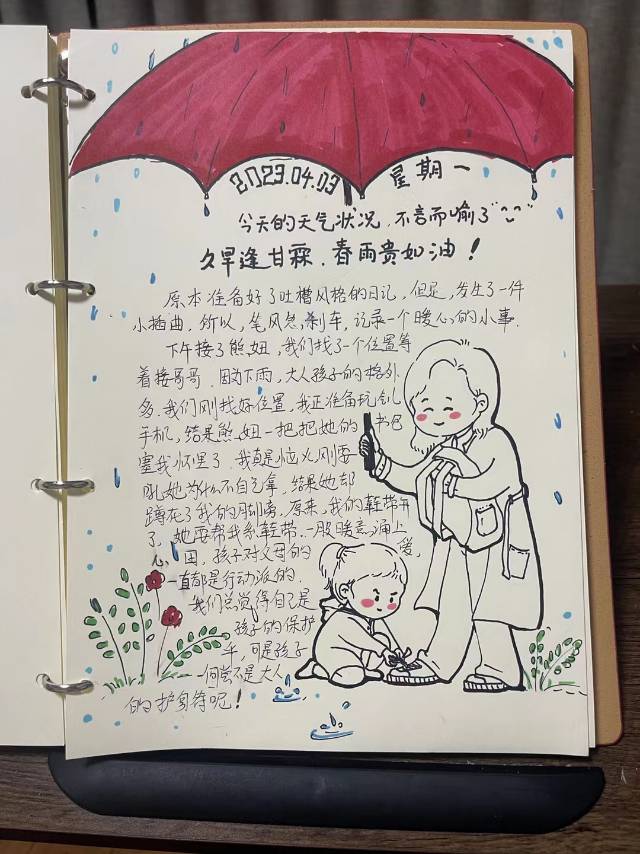 2023.04.03 星期一
今天的天气状况,不言而喻了
久旱逢甘霖,春雨贵如油!
原本准备好了吐槽风格的日记,但是,发生了一件
小插曲,所以,笔风急刹车,记录一个暖心的小事.
下午接了熊妞,我们找了一个位置等
着接哥哥.因为下雨,大人孩子的格外
多.我们刚找好位置,我正准备玩会儿
手机,结果熊妞一把把她的书包
塞我怀里了.我真是恼火,刚要
吼她为什么不自己拿,结果她却
蹲在了我的脚旁,原来,我的鞋带开
了,她要帮我系鞋带.一股暖意涌上
心田,孩子对父母的爱,
一直都是行动派的.
我们总觉得自己是
孩子的保护
伞,可是孩子
何尝不是大人
的护身符呢!